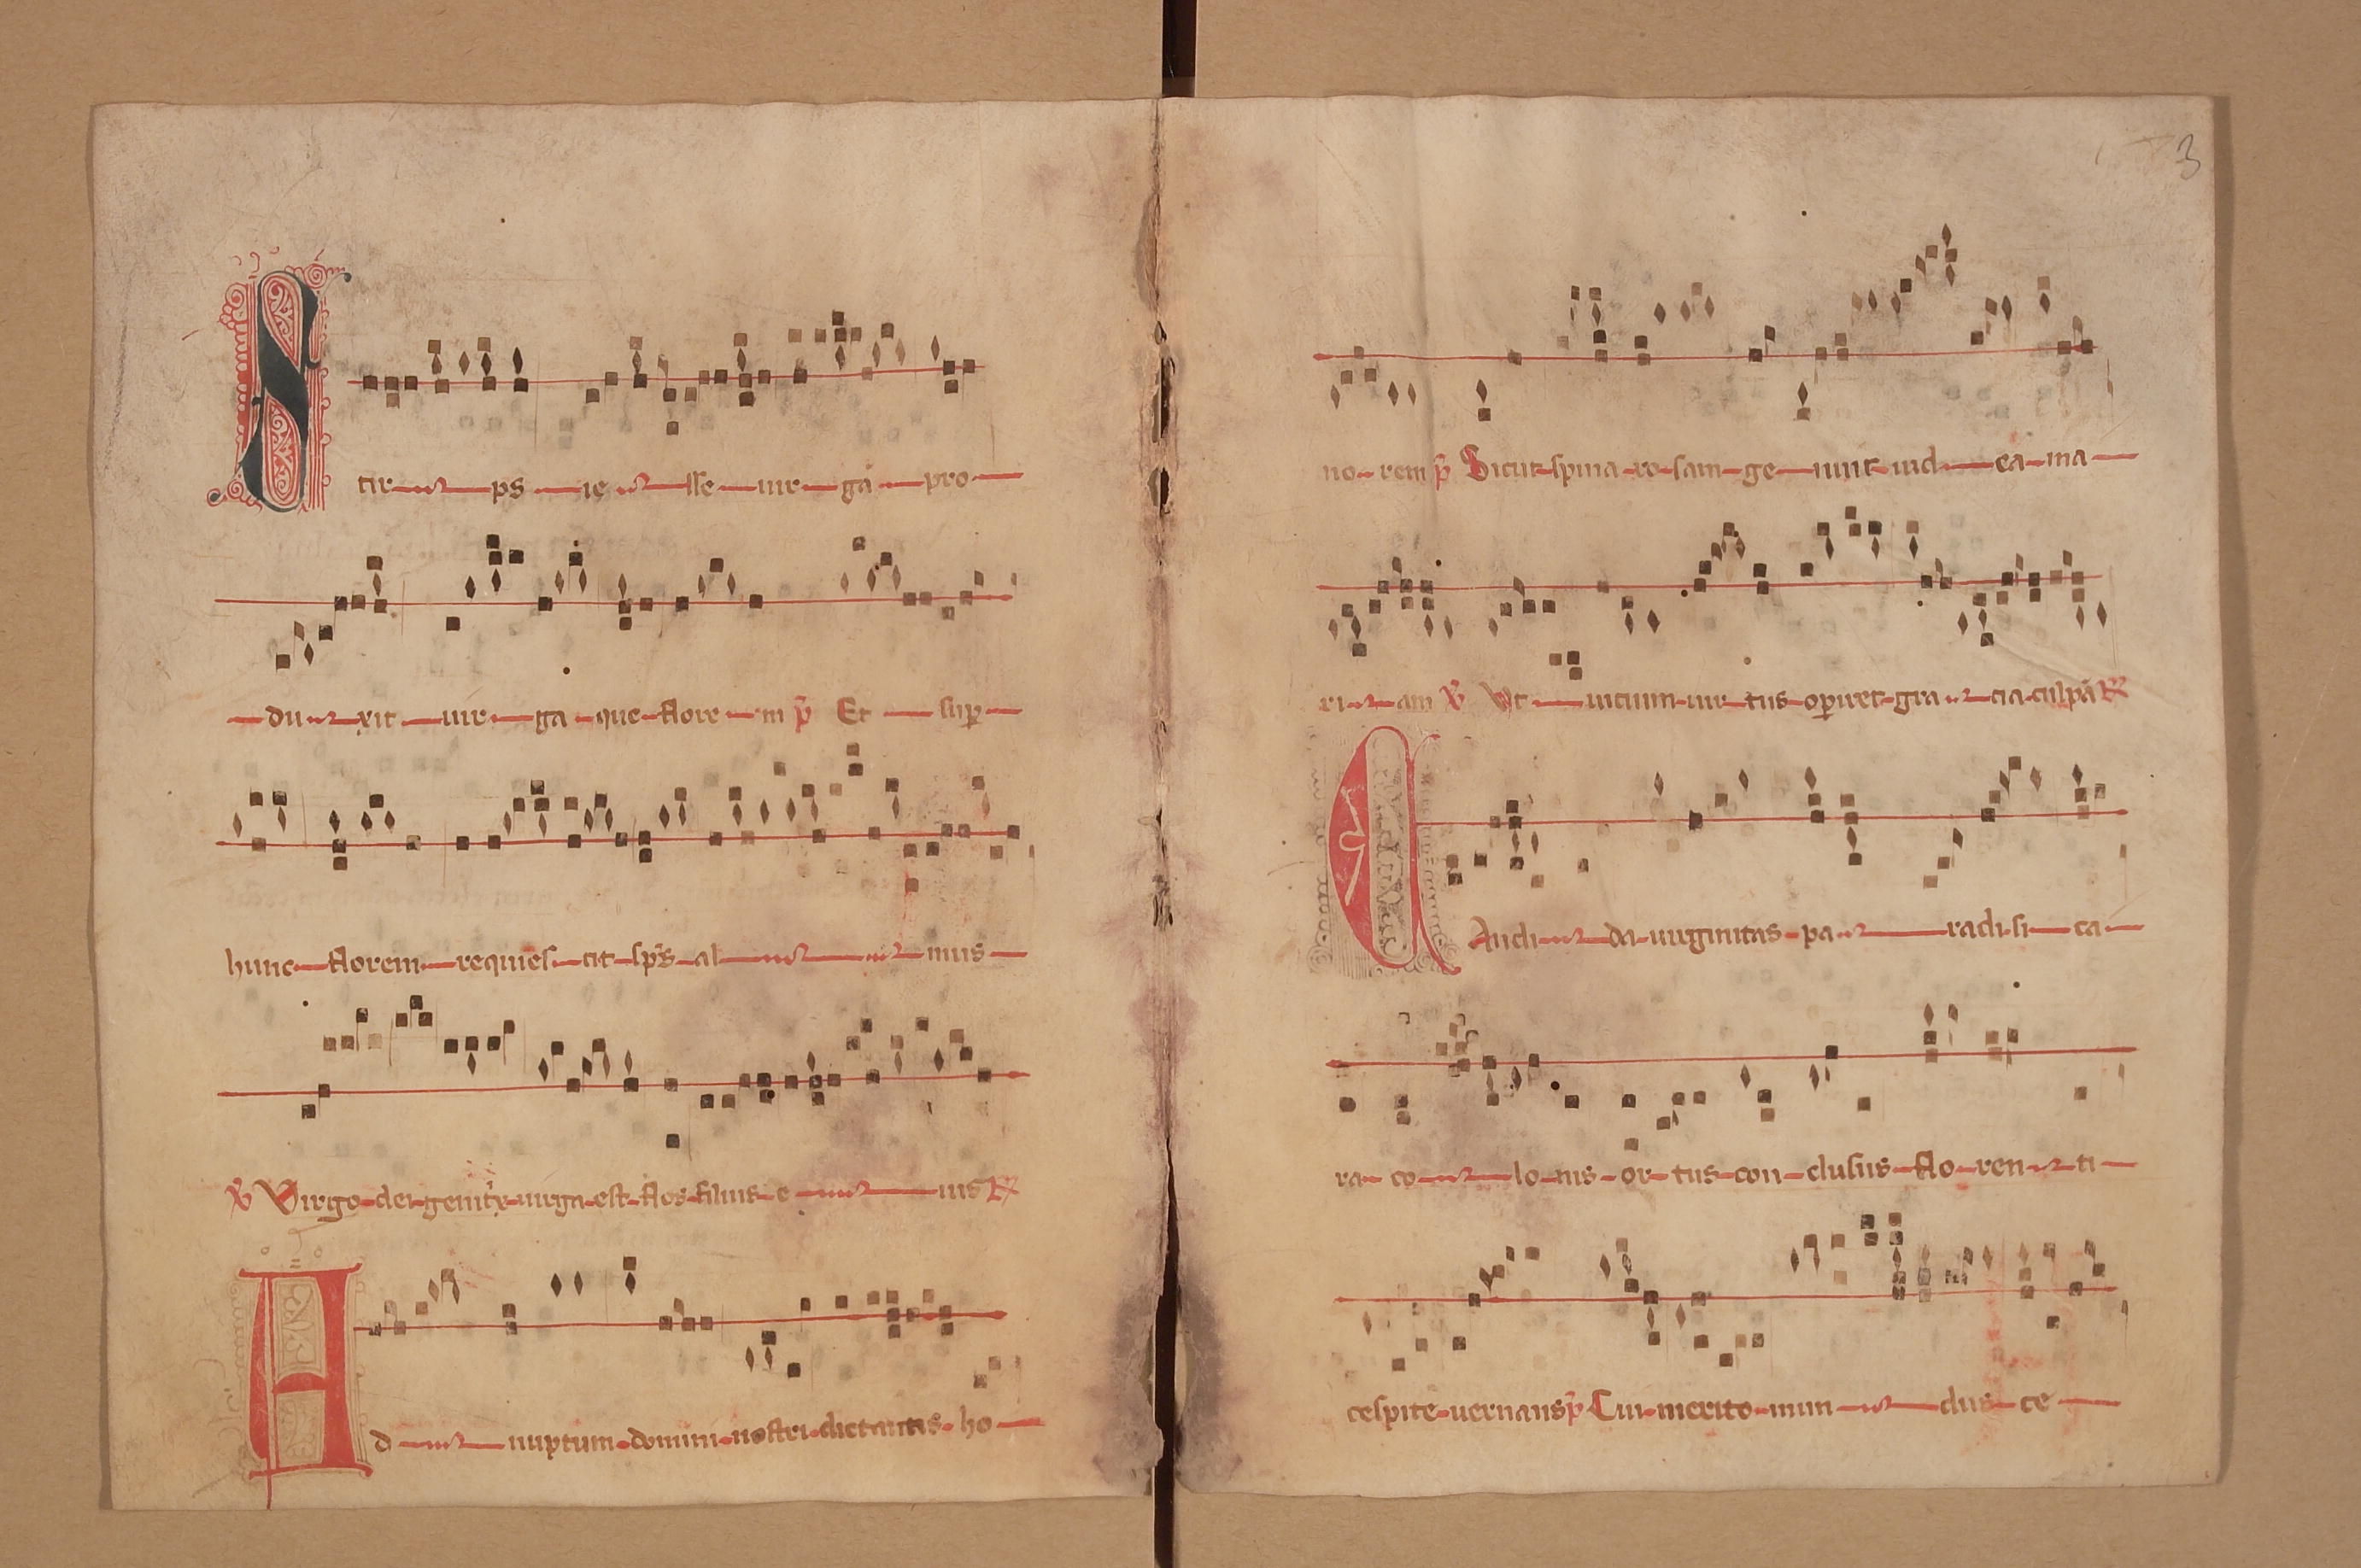 Stirps iesse uirgā pro
duxit uirga que florem p̄ Et sup̄
hunc florem requiescit sp̄s almus
℣ Virgo dei genitͥx uirga est flos filius eius ℟
Ad nuptum domini nostri dictantis ho
3
norem p̄ Sicut spina rosam genuit iudea ma
riam ℣ Ut uicium uirtus opiret gratia culpā ℟
Candida uirginitas paradisi ca
ra colonis ortus conclusus florenti
cespite uernans p̄ Cui merito mundus ce